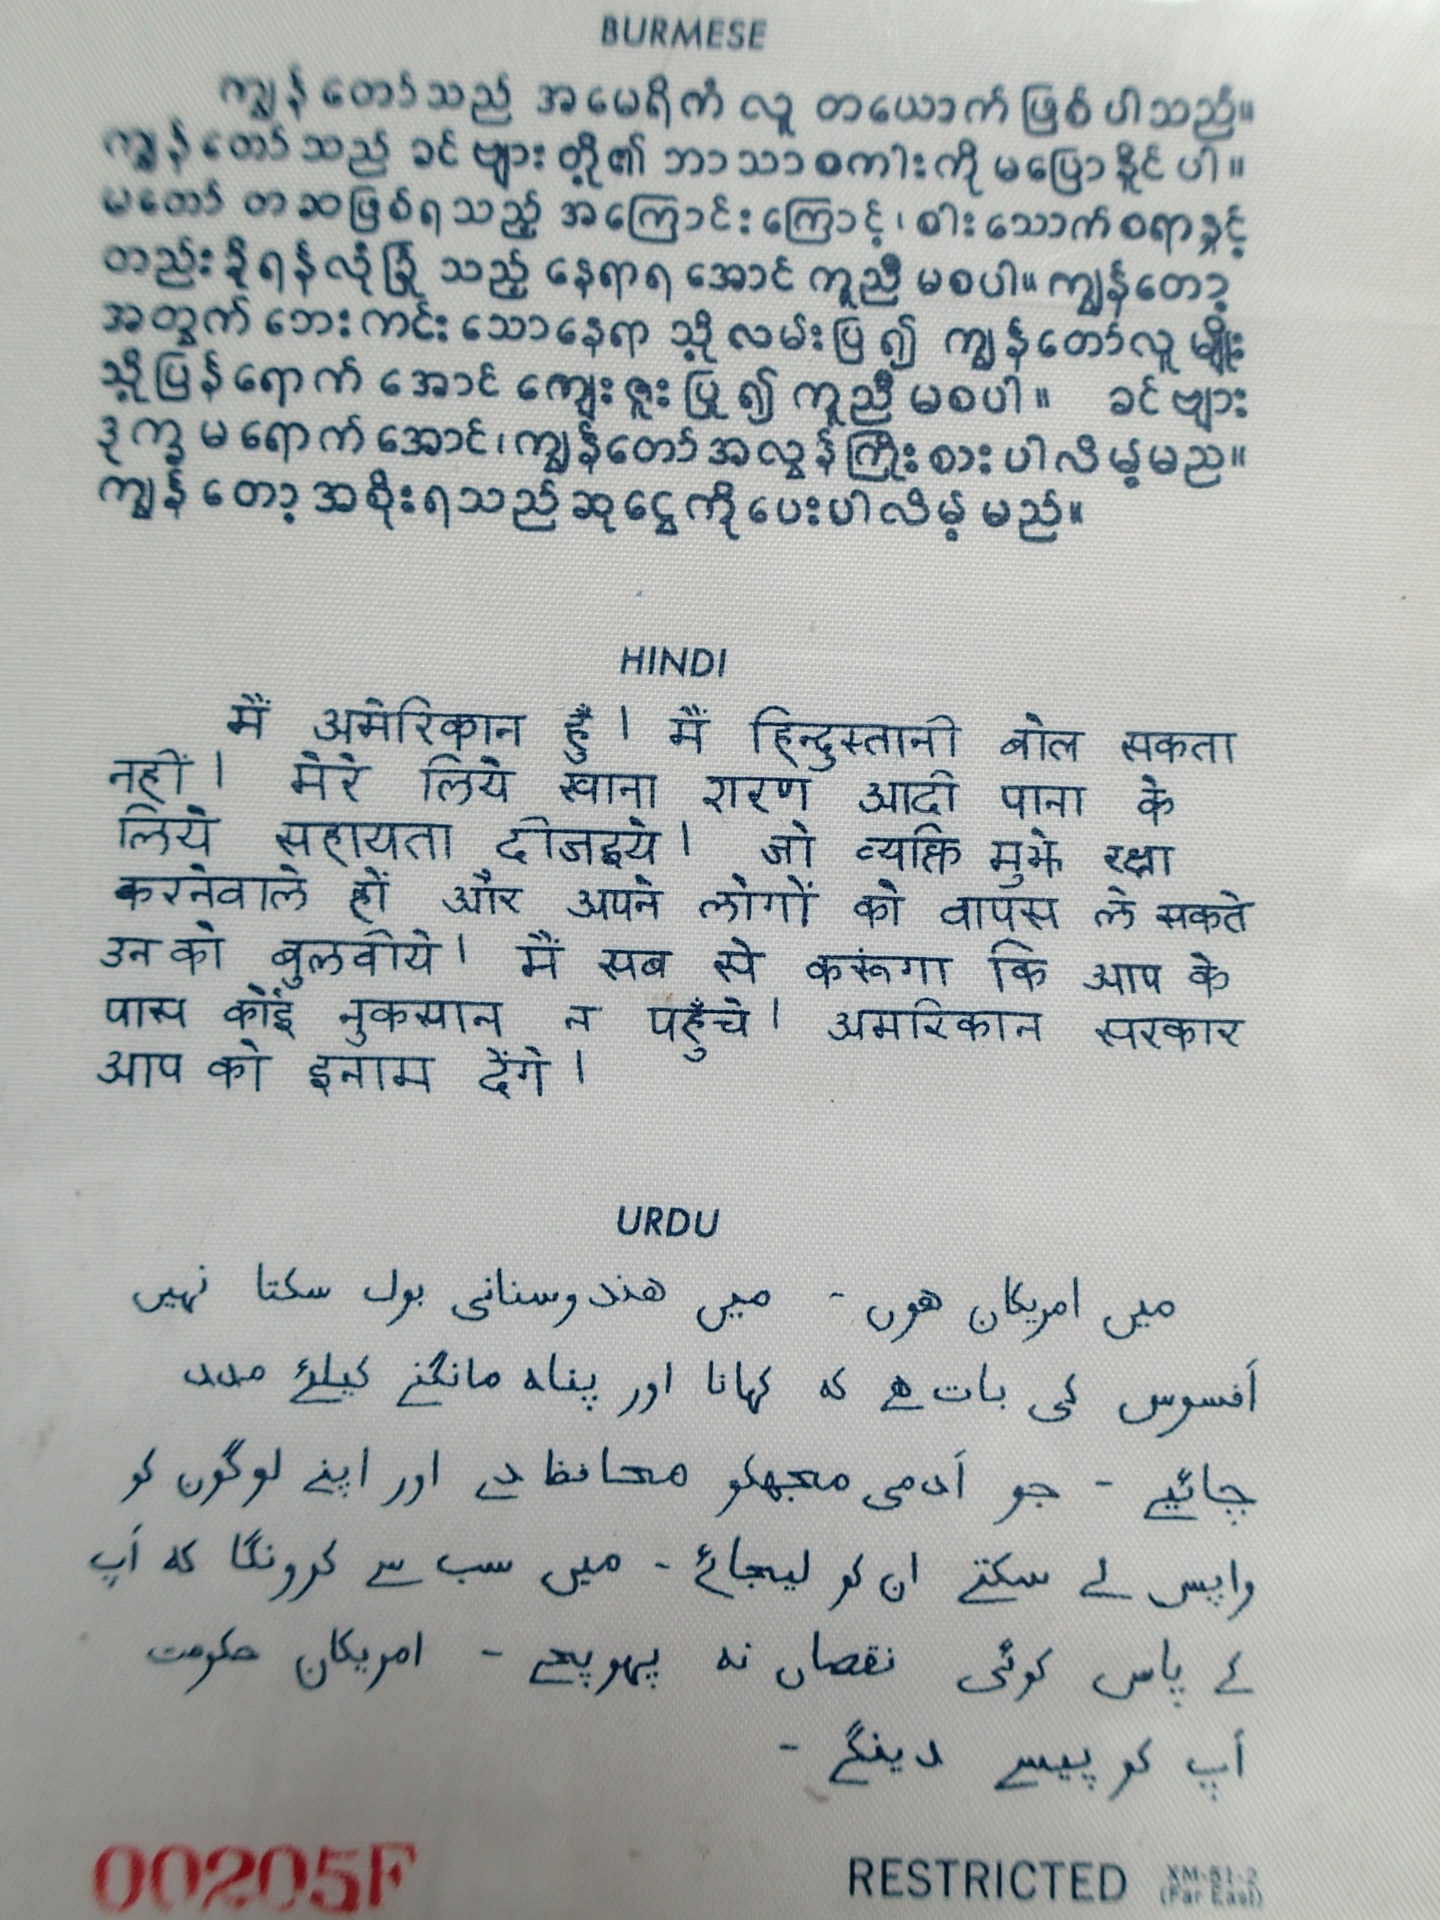 BURMESE
ကျွန်တော်သည် အမေရိကံ လူ တယောက် ဖြစ်ပါသည်။
ကျွန်တော်သည် ခင်ဗျားတို့၏ ဘာသာစကားကို မပြောနိုင်ပါ။
မတော်တဆဖြစ်ရသည့် အကြောင်းကြောင့်၊ စားသောက်စရာနှင့်
တည်းခိုရန်လုံခြုံသည့် နေရာရအောင် ကူညီမစပါ။ ကျွန်တော့
အတွက် ဘေးကင်းသောနေရာ သို့ လမ်းပြ၍ ကျွန်တော်လူမျိုး
သို့ပြန်ရောက်အောင် ကျေးဇူးပြု၍ ကူညီမစပါ။ ခင်ဗျား
ဒုက္ခမရောက်အောင်၊ ကျွန်တော်အလွန်ကြိုးစားပါလိမ့်မည။
ကျွန်တော့အစိုးရသည်ဆုငွေကိုပေးပါလိမ့်မည်။
HINDI
मैं अमेरिकान हुँ। मैं हिन्दुस्तानी बोल सकता
नहीं। मेरे लिये खाना शरण आदी पाना के
लिये सहायता दीजइये। जो व्यक्ति मुझे रक्षा
करनेवाले हों और अपने लोगों को वापस ले सकते
उन को बुलवीये। मैं सब से करूंगा कि आप के
पास कोई नुकसान न पहुँचे। अमरिकान सरकार
आप को इनाम देंगे।
URDU
میں امریکان ھوں - میں ھندوستانی بول سکتا نہیں
أفسوس کی بات ھے کہ کھانا اور پناہ مانگنے کیلئے مدد
چائیے - جو أدمی مجھکو محافظ دے اور اپنے لوگوں کو
واپس لے سکتے ان کو لیجائے - میں سب سے کرونگا کہ أپ
کے پاس کوئی نقصاں نہ پہوپحے - امریکان حکومت
أپ کو پیسے دینگے -
00205F
RESTRICTED XM-51-2
(Far East)